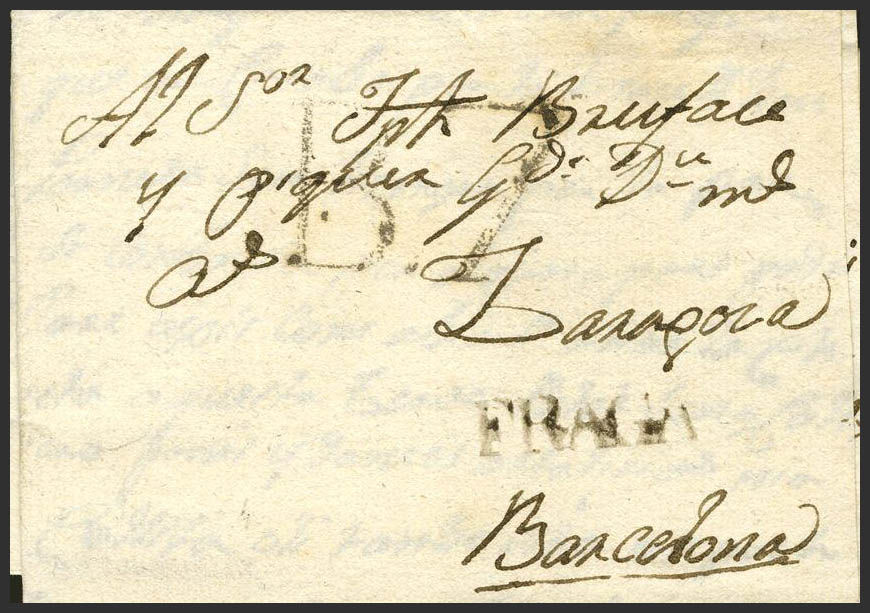 Al Sor Jph Bruface
y piquer Gde. Du md
B.7
Zaragoza
FRAGA
Barcelona